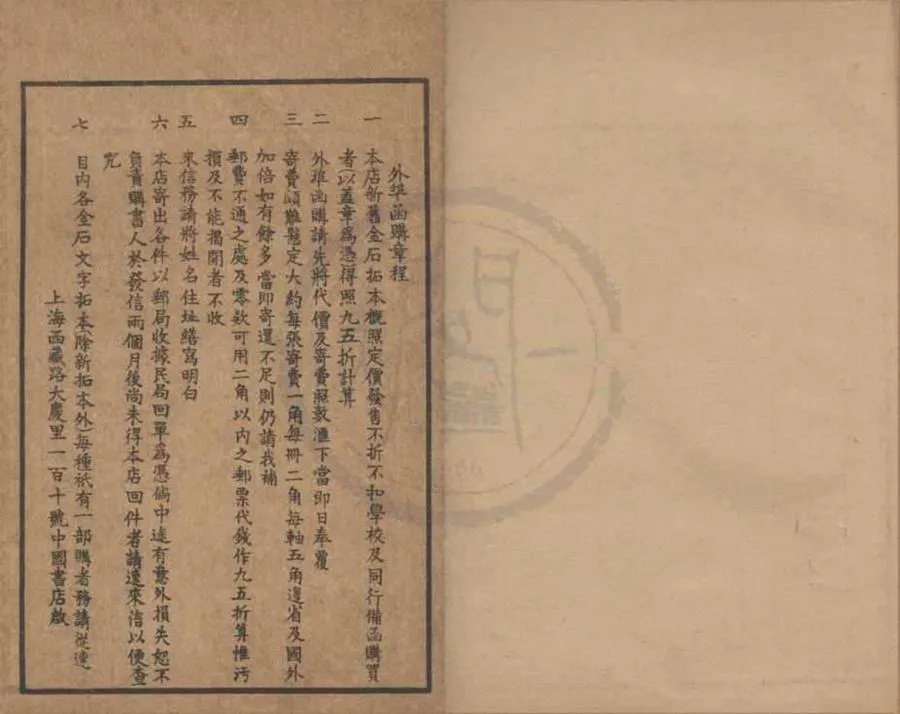 外埠函購章程
一 本店新舊金石拓本概照定價發售不折不扣學校及同行備函購買
者(以蓋章為憑得照九五折計算
二 外埠函購請先將代價及寄費照數滙下當即日奉覆
三 寄費頗難懸定大約每張寄費一角每冊二角每軸五角邊省及國外
加倍如有餘多當即寄還不足則仍請找補
四 郵費不通之處及零欵可用二角以內之郵票代錢作九五折算惟汚
損及不能揭開者不收
五 來信務請將姓名住址繕寫明白
六 本店寄出各件以郵局收據民局回單為憑倘中途有意外損失恕不
負責購書人於發信兩個月後尚未得本店回件者請速來信以便查
究
七 目內各金石文字拓本(除新拓本外)每種祇有一部購者務請從速
上海西藏路大慶里一百十號中國書店啟